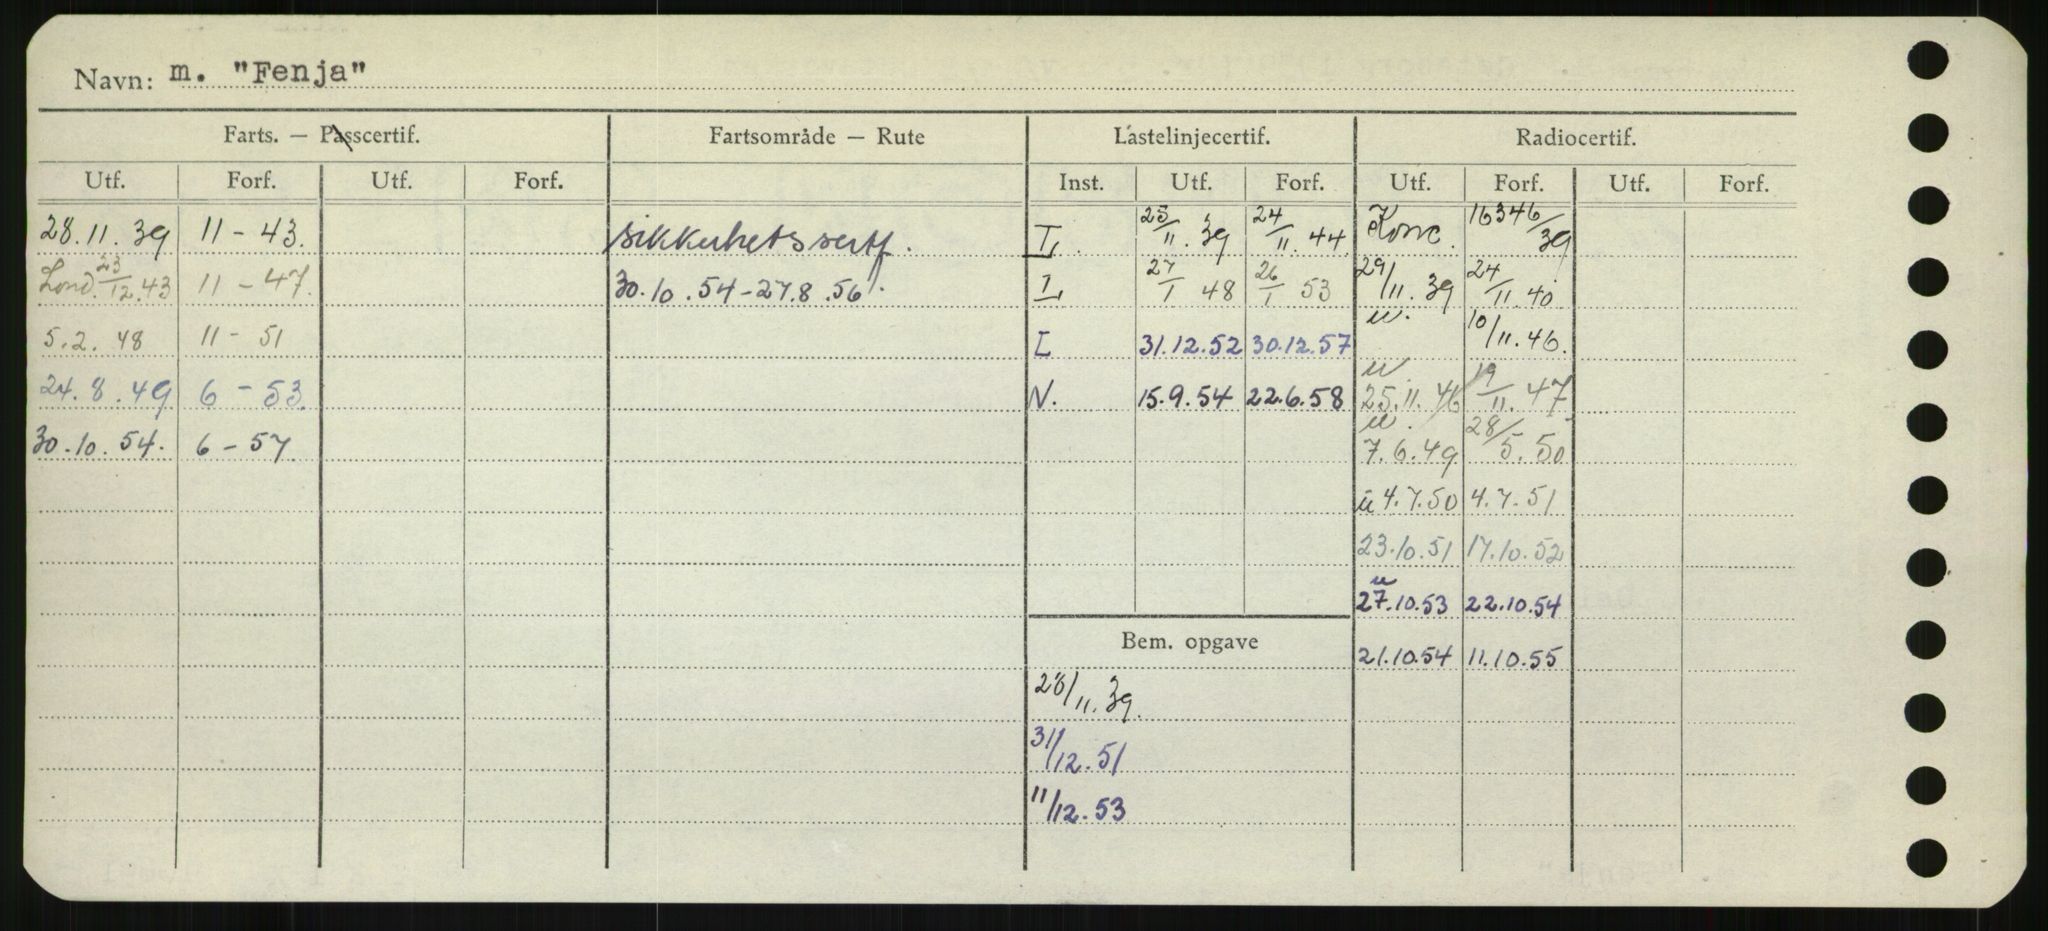 Navn: m. "Fenja"
Farts. — Passcertif. Fartsområde — Rute Lastelinjecertif. Radiocertif.
Utf. Forf. Utf. Forf. Inst. Utf. Forf. Utf. Forf. Utf. Forf.
28.11.39 11-43. sikkerhetssertf. L. 25/11.39 24/11.44 Konc. 16346/39
Lond. 23/12.43 11-47. 30.10.54-27.8.56. L 27/1 48 26/1 53 29/11.39 24/11.40
5.2.48 11-51 L 31.12.52 30.12.57 u. 10/11.46.
24.8.49 6-53. N. 15.9.54 22.6.58 u 25.11.46 19/11.47
30.10.54. 6-57. u. 7.6.49 28/5.50
u 4.7.50 4.7.51
23.10.51 17.10.52
u 27.10.53 22.10.54
Bem. opgave 21.10.54 11.10.55
28/11.39.
31/12.51
11/12.53